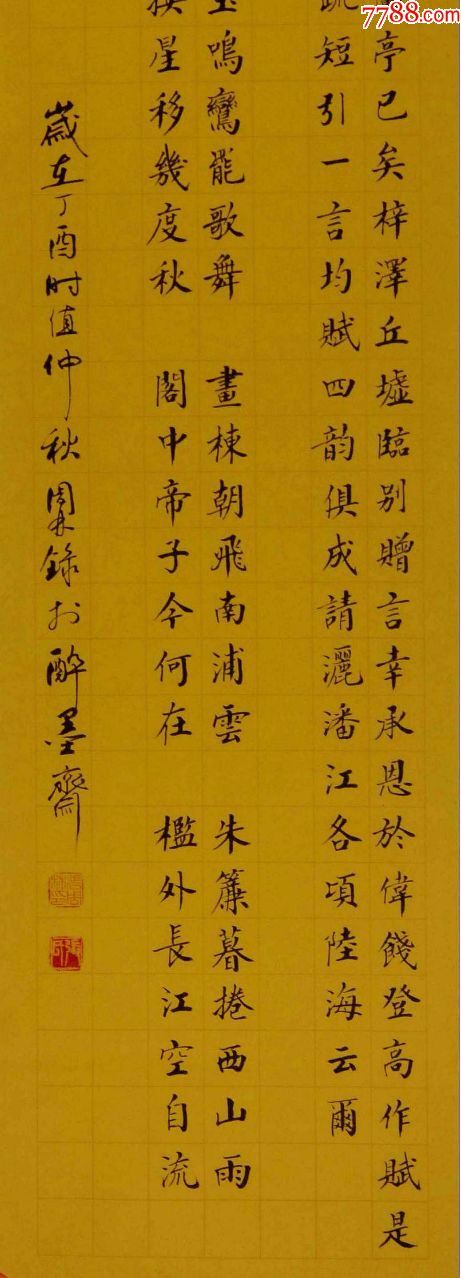 7788.com
亭已矣梓澤丘墟臨別贈言幸承恩於偉餞登高作賦是
疏短引一言均賦四韻俱成請灑潘江各頃陸海云爾
玉鳴鸞罷歌舞 畫棟朝飛南浦雲 朱簾暮捲西山雨
換星移幾度秋 閣中帝子今何在 檻外長江空自流
歲在丁酉时值仲秋錄扵醉墨齋